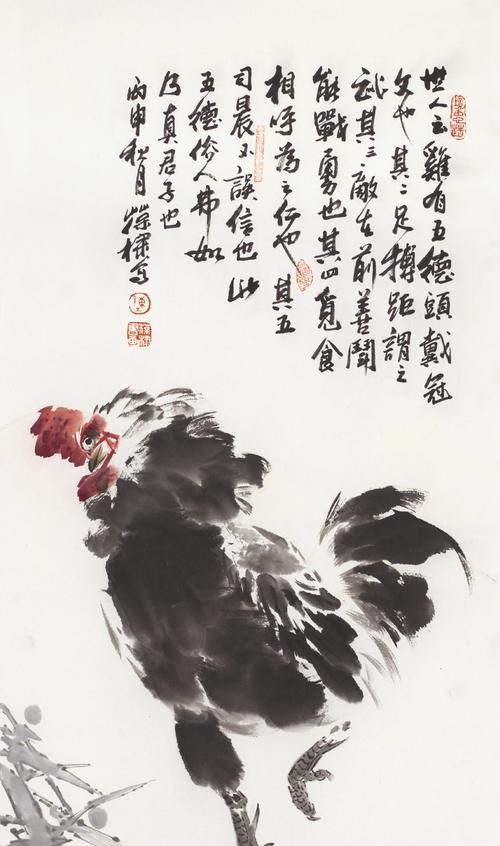 世人云雞有五德頭戴冠
文也其二足搏距謂之
武其三敵在前善鬥
能戰勇也其四覓食
相呼為之仁也其五
司晨不誤信也此
五德俗人弗如
乃真君子也
丙申秋月寫